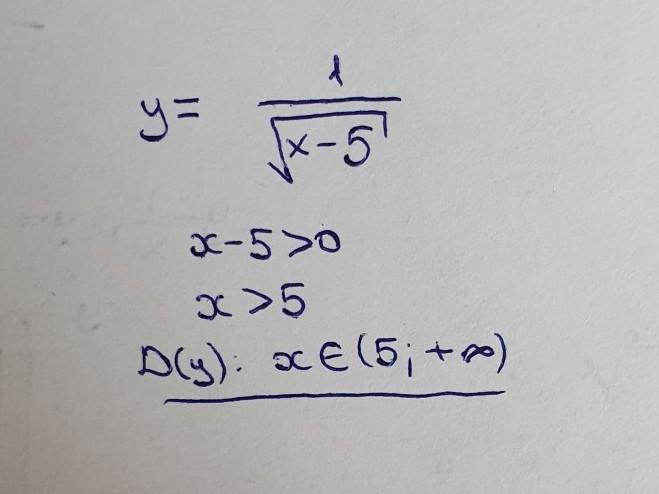 y = 1/√(x-5)
x-5>0
x>5
D(y): x∈(5;+∞)